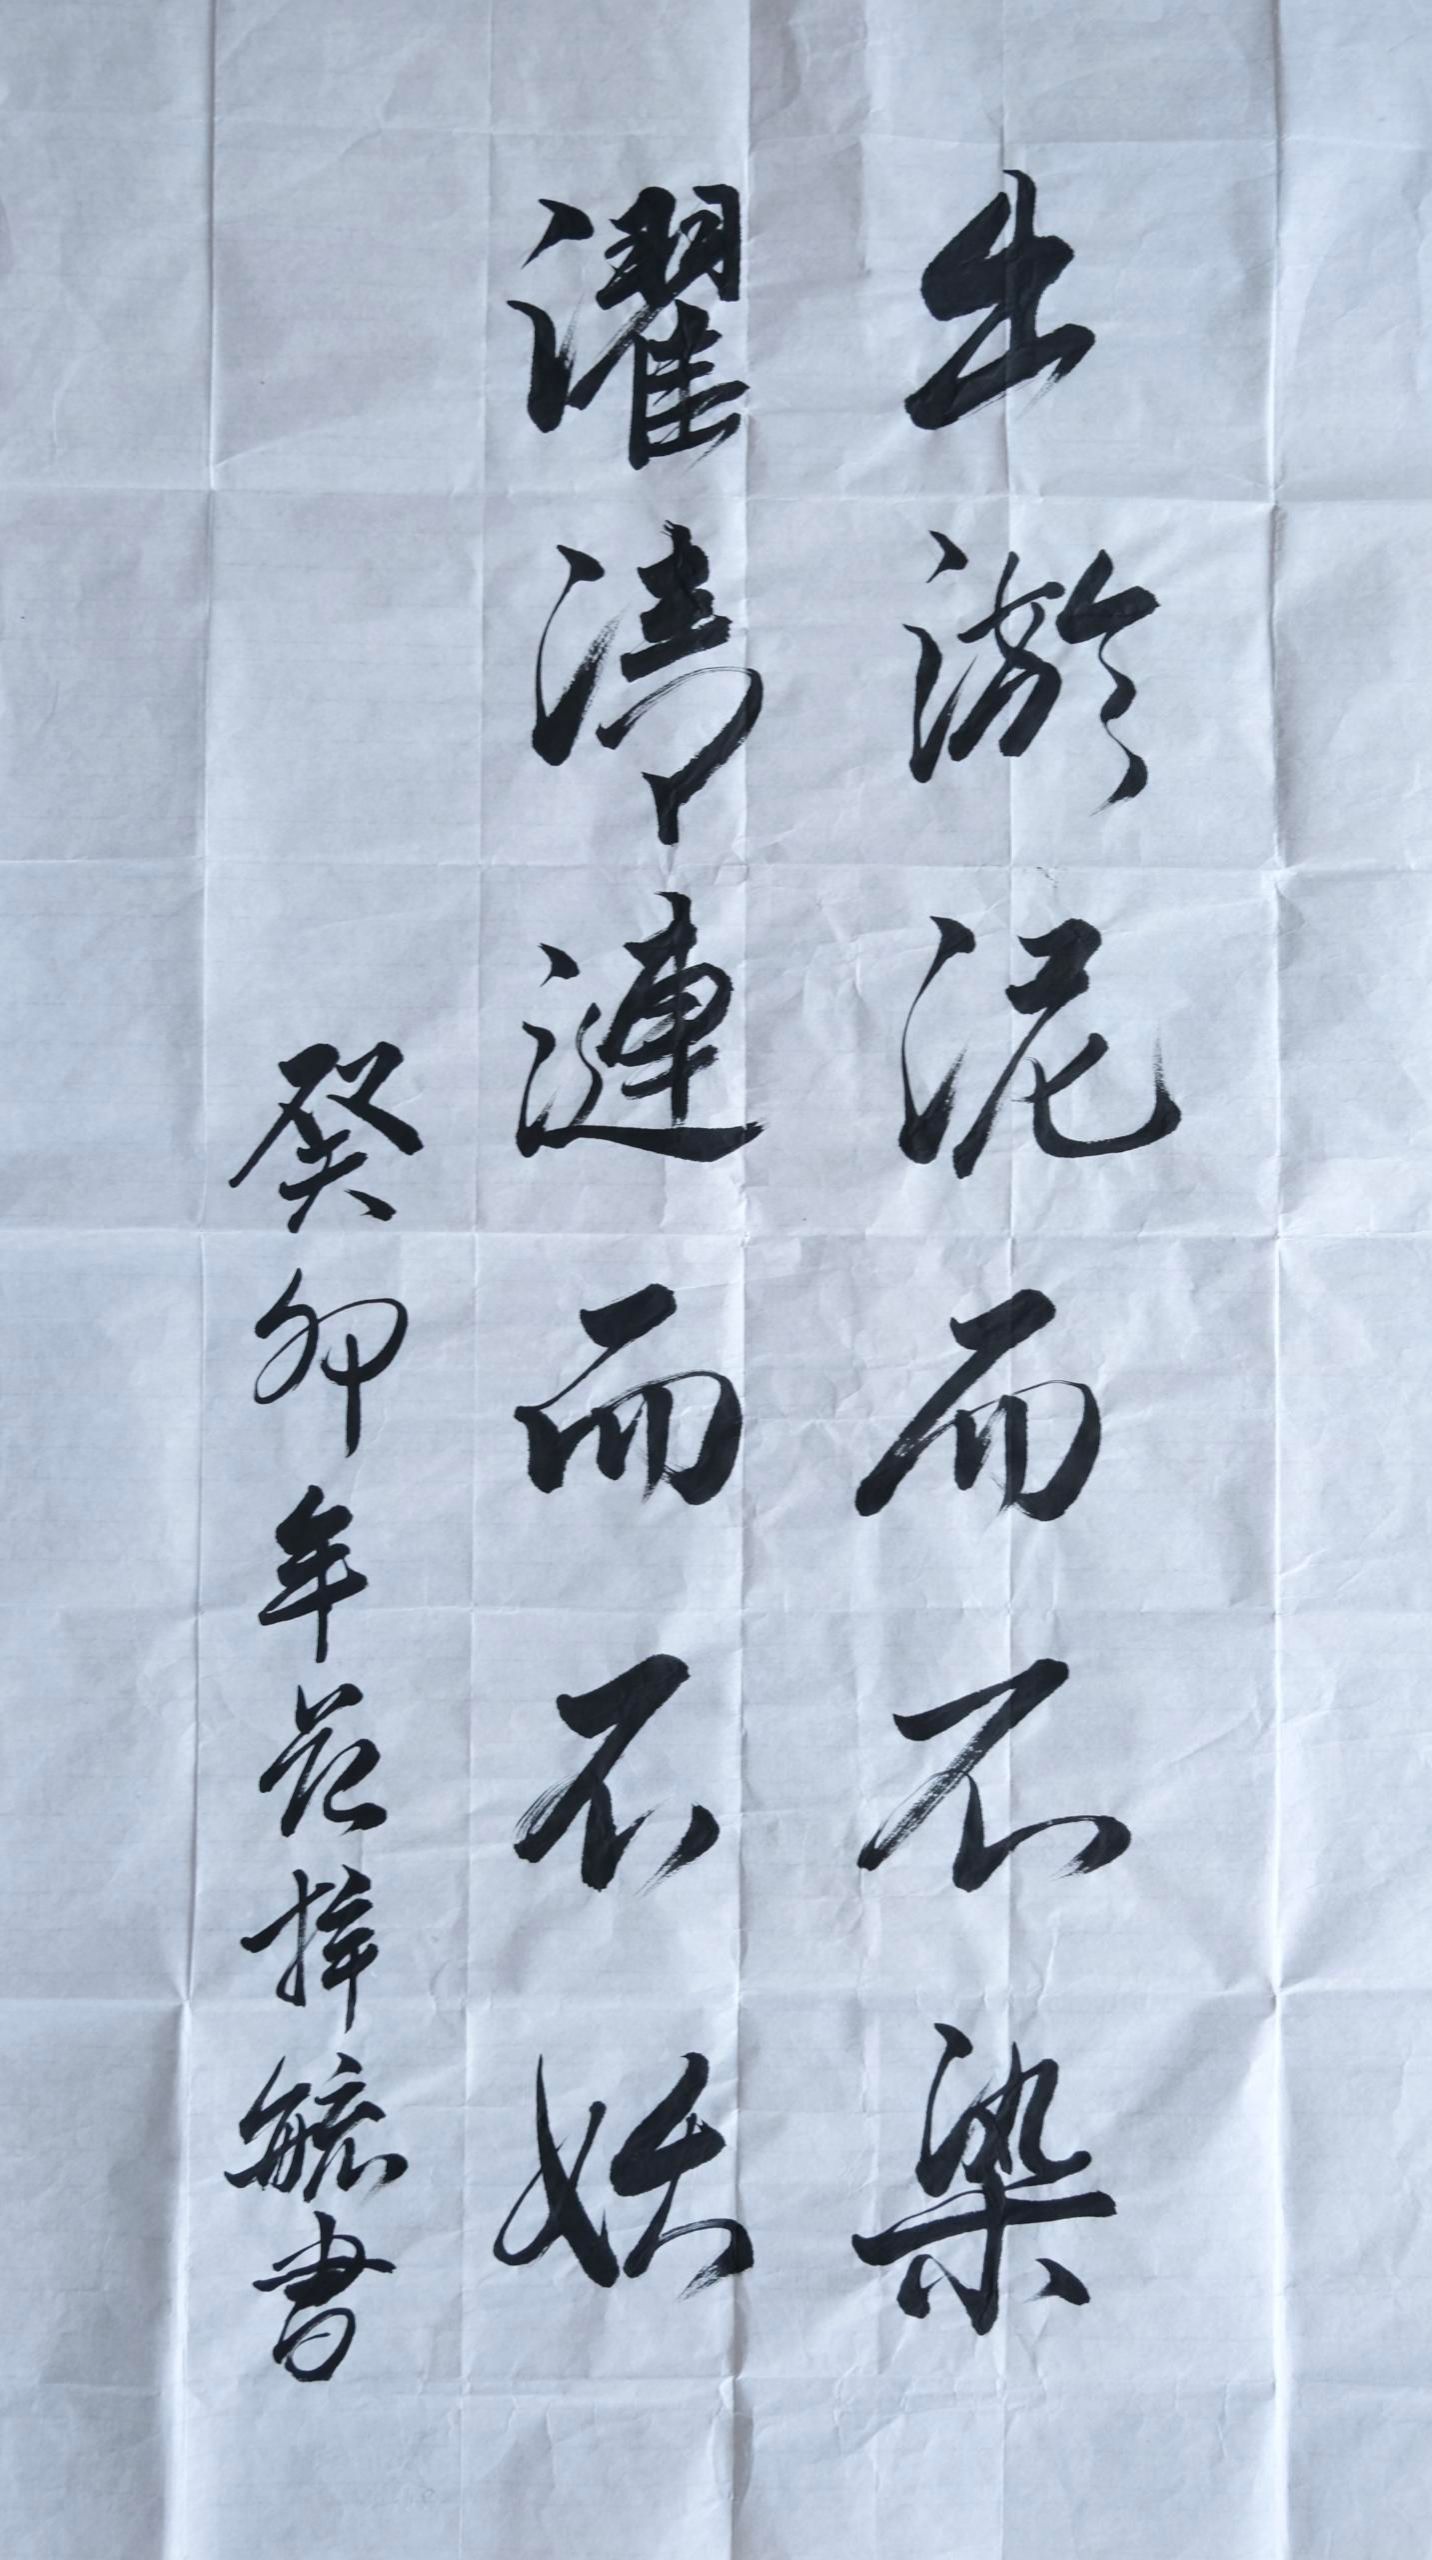 出淤泥而不染
濯清漣而不妖
癸卯年范梓毓書